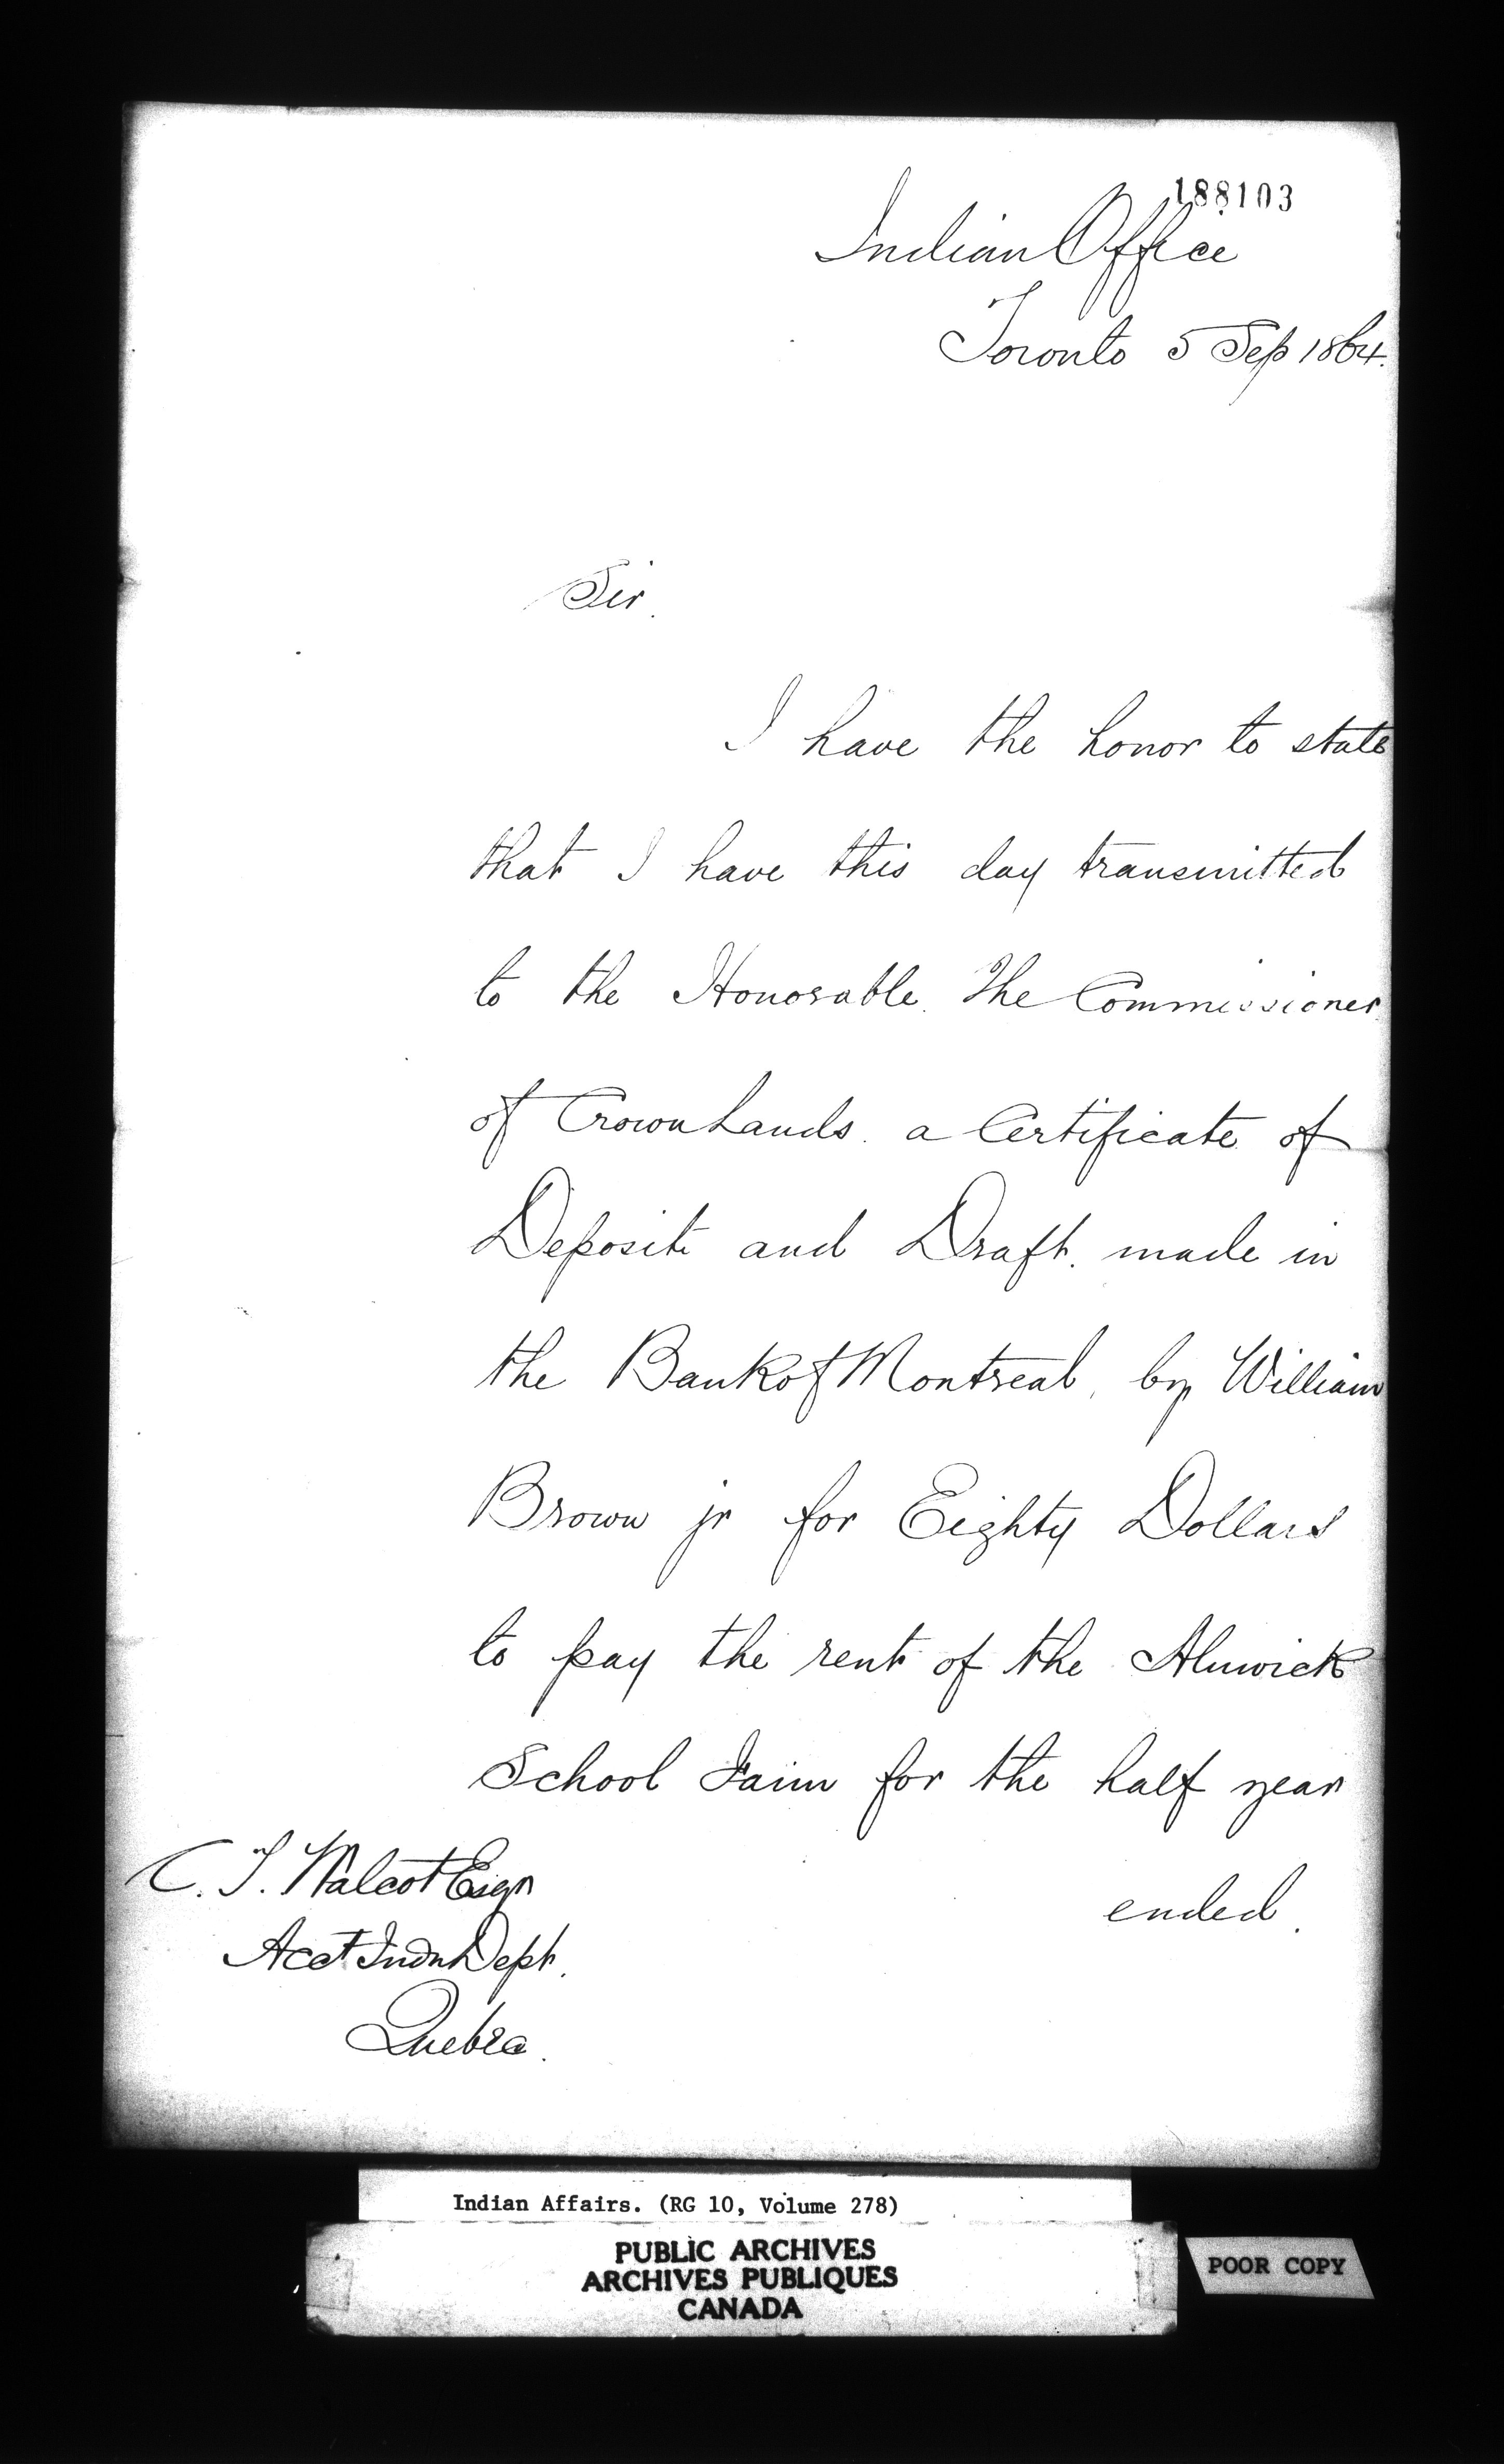 188103
Indian Office
Toronto 5 Sep 1864.
Sir.
I have the honor to state
that I have this day transmitted
to the Honorable. The Commissioner
of Crown Lands. a Certificate of
Deposite and Draft. made in
the Bank of Montreal, by William
Brown jr for Eighty Dollars
to pay the rent of the Alnwick
School Farm for the half year
ended.
C. T. Walcot Esqr
Acct Indn Dept.
Quebec.
Indian Affairs. (RG 10, Volume 278)
PUBLIC ARCHIVES
ARCHIVES PUBLIQUES
CANADA
POOR COPY